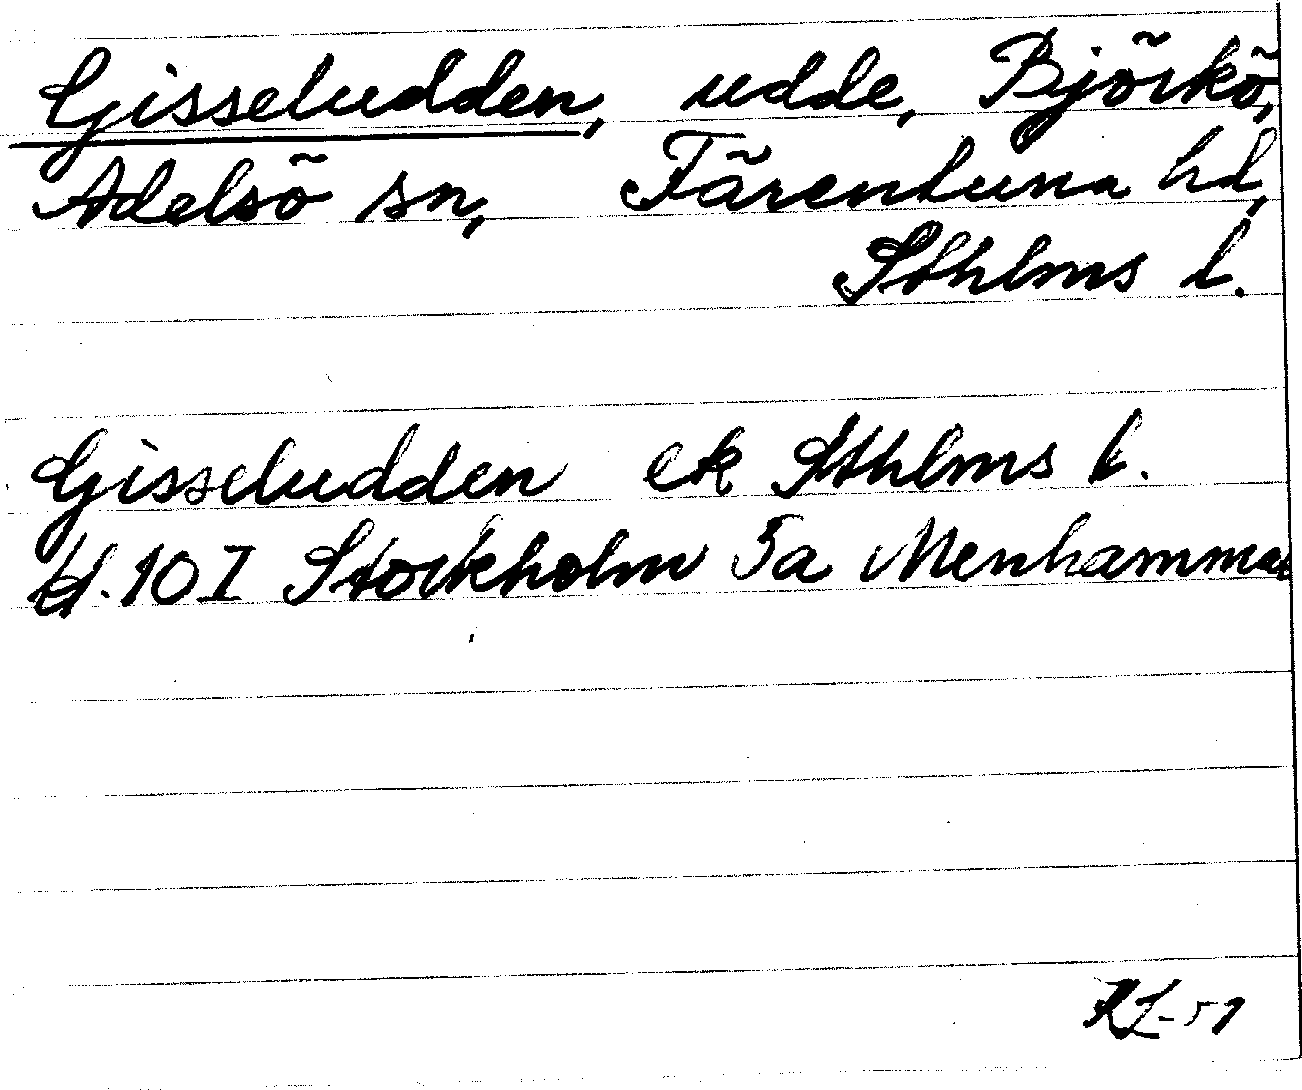 Gisseludden, udde, Björkö,
Adelsö sn, Färentuna hd,
Sthlms l.
Gisseludden ek Sthlms l.
bl. 10 I Stockholm 5a Menhammar
RL-51